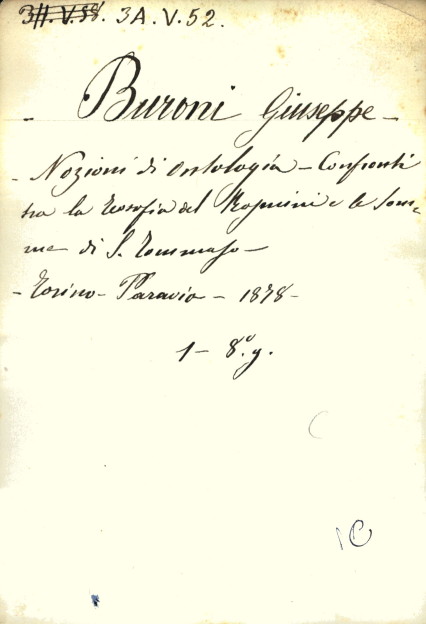 3H.V.58. 3A.V.52.
- Buroni Giuseppe -
- Nozioni di Ontologia - Confronti
tra la Teosofia del Rosmini e le Som-
me di S. Tommaso -
- Torino - Paravia - 1878 -
1 - 8º. g.
C